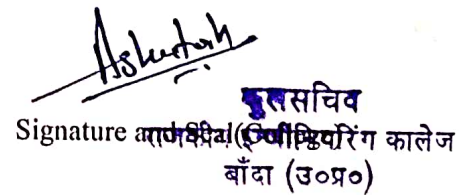 Ashutosh
कुलसचिव
Signature and Seal
राजकीय इंजीनियरिंग कालेज
बाँदा (उ०प्र०)